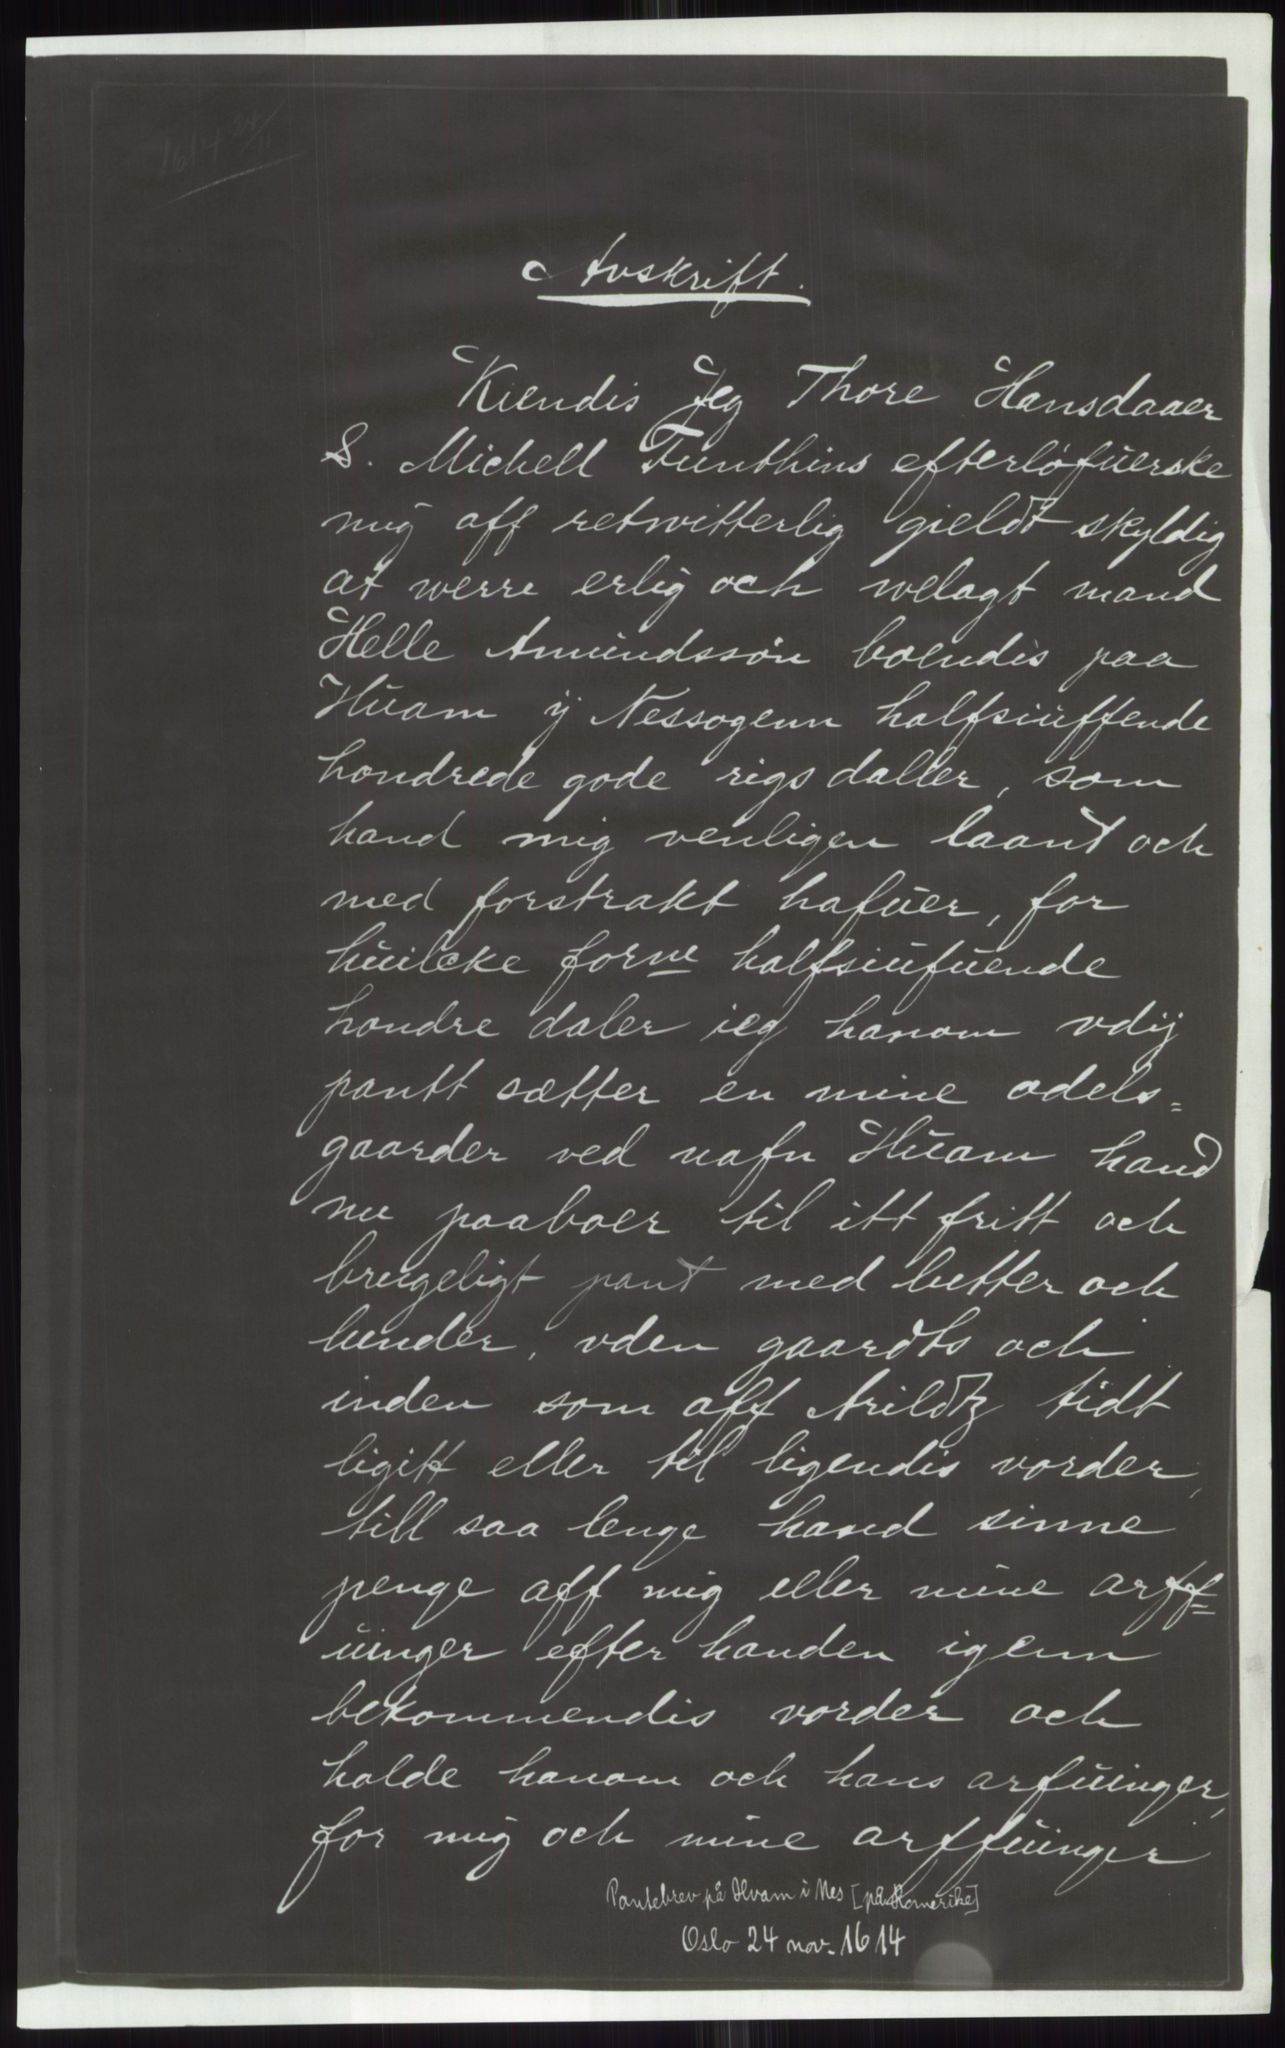 1614 24/11
Avskrift.
Kiendis Jeg Thore Hansdaaer
S. Michell Tunthins efterløfüerske
mig aff retwitterlig gieldt skyldig
at werre erlig och welagt mand
Helle Amündssøn boendis paa
Hüam ÿ Nessogenn halfsiuffende
hondrede gode rigsdaller, som
hand mig venligen laant och
med forstrakt hafüer, for
hüilcke forne halfsiufüende
hondre daler ieg hanom vdij
pantt sætter en mine odels=
gaarder ved nafn Hüam hand
nu paaboer til itt fritt och
brugeligt pant med lutter och
lunder, vden gaardts och
inden som aff Arildtz tidt
ligitt eller til ligendis vorder,
till saa lenge hand sinne
penge aff mig eller mine arff=
üinger efter handen igenn
bekommendis vorder och
holde hanom och hans arfüinger,
for mig och mine arffüinger
Pantebrev på Hvam i Nes [på Romerike]
Oslo 24 nov. 1614